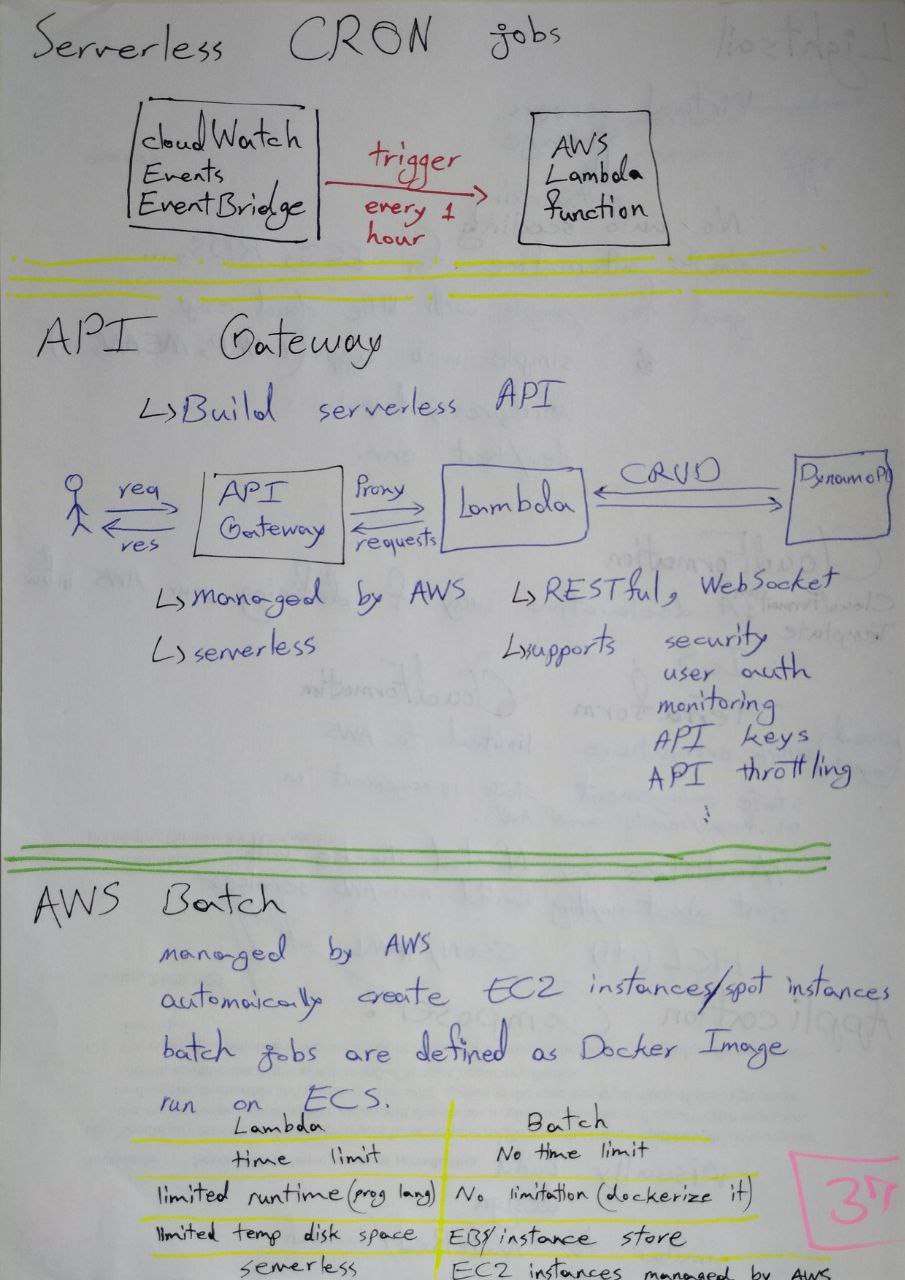 Serverless CRON jobs
cloudWatch
Events
EventBridge
trigger
every 1
hour
AWS
Lambda
function
API Gateway
↳Build serverless API
req
res
API
Gateway
Proxy
requests
Lambda
CRUD
↳managed by AWS
↳serverless
↳RESTful, WebSocket
↳supports security
user auth
monitoring
API keys
API throttling
⋮
AWS Batch
managed by AWS
automaically create EC2 instances/spot instances
batch jobs are defined as Docker Image
run on ECS.
Lambda Batch
time limit No time limit
limited runtime (prog lang) No limitation (dockerize it)
limited temp disk space EBS/instance store
serverless EC2 instances managed by AWS
37